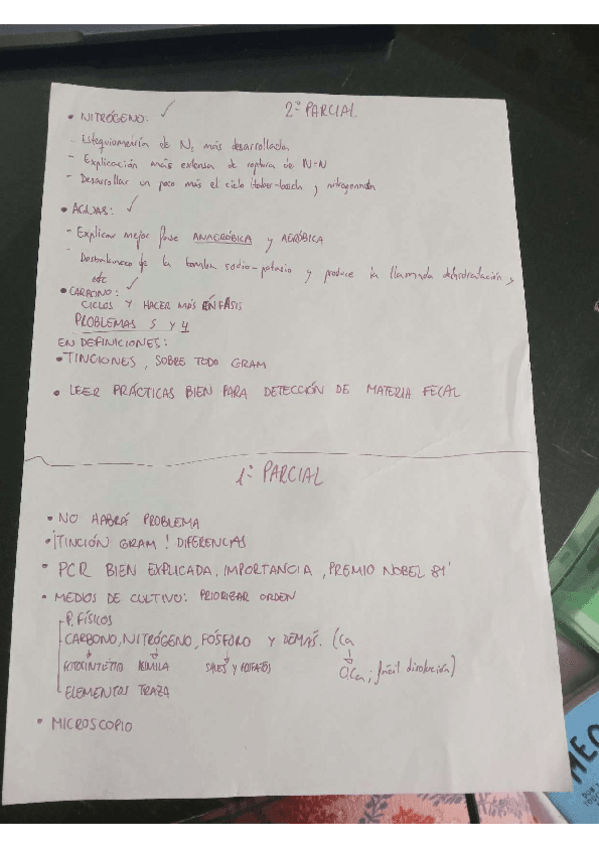 2º PARCIAL
• NITRÓGENO: ✓
- Estequiometría de N₂ más desarrollada
- Explicación más extensa de ruptura de N-N
- Desarrollar un poco más el ciclo Haber-bosch y nitrogenasa
• AGUAS: ✓
- Explicar mejor fase ANAERÓBICA y AERÓBICA
- Desbalanceo de la bomba sodio-potasio y produce la llamada deshidratación y
etc
• CARBONO: ✓
CICLOS Y HACER MÁS ÉNFASIS
PROBLEMAS 5 Y 4
EN DEFINICIONES:
• TINCIONES, SOBRE TODO GRAM
• LEER PRÁCTICAS BIEN PARA DETECCIÓN DE MATERIA FECAL
1º PARCIAL
• NO HABRÁ PROBLEMA
• ¡TINCIÓN GRAM! DIFERENCIAS
• PCR BIEN EXPLICADA, IMPORTANCIA, PREMIO NOBEL 81'
• MEDIOS DE CULTIVO: PRIORIZAR ORDEN
P. FÍSICOS
CARBONO, NITRÓGENO, FÓSFORO Y DEMÁS. (Ca
FOTOSINTÉTICO SALES Y FOSFATOS ; fácil disolución)
ELEMENTOS TRAZA
• MICROSCOPIO